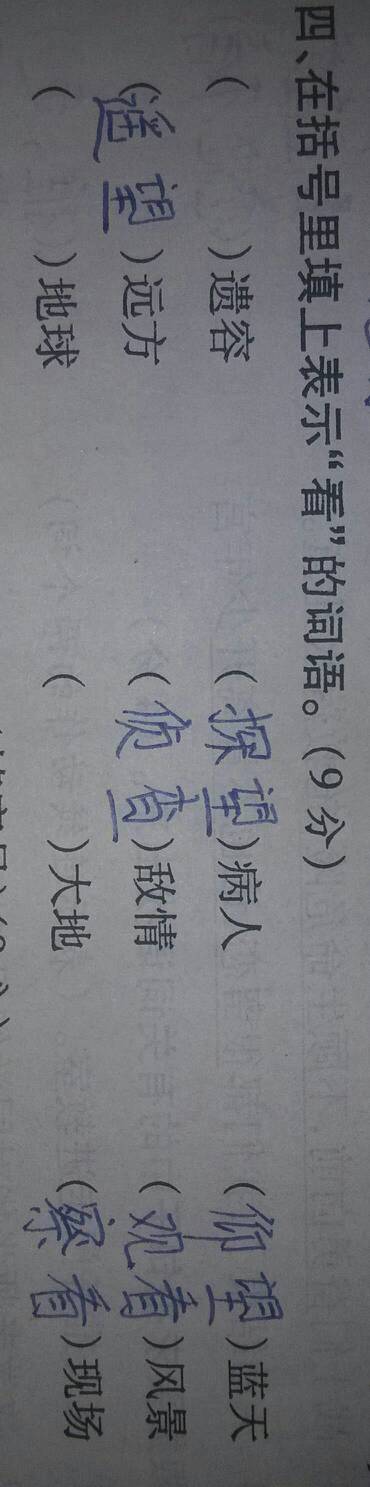 四、在括号里填上表示“看”的词语。(9分)
( )遗容 (探望)病人 (仰望)蓝天
(遥望)远方 (侦查)敌情 (观看)风景
( )地球 ( )大地 (察看)现场